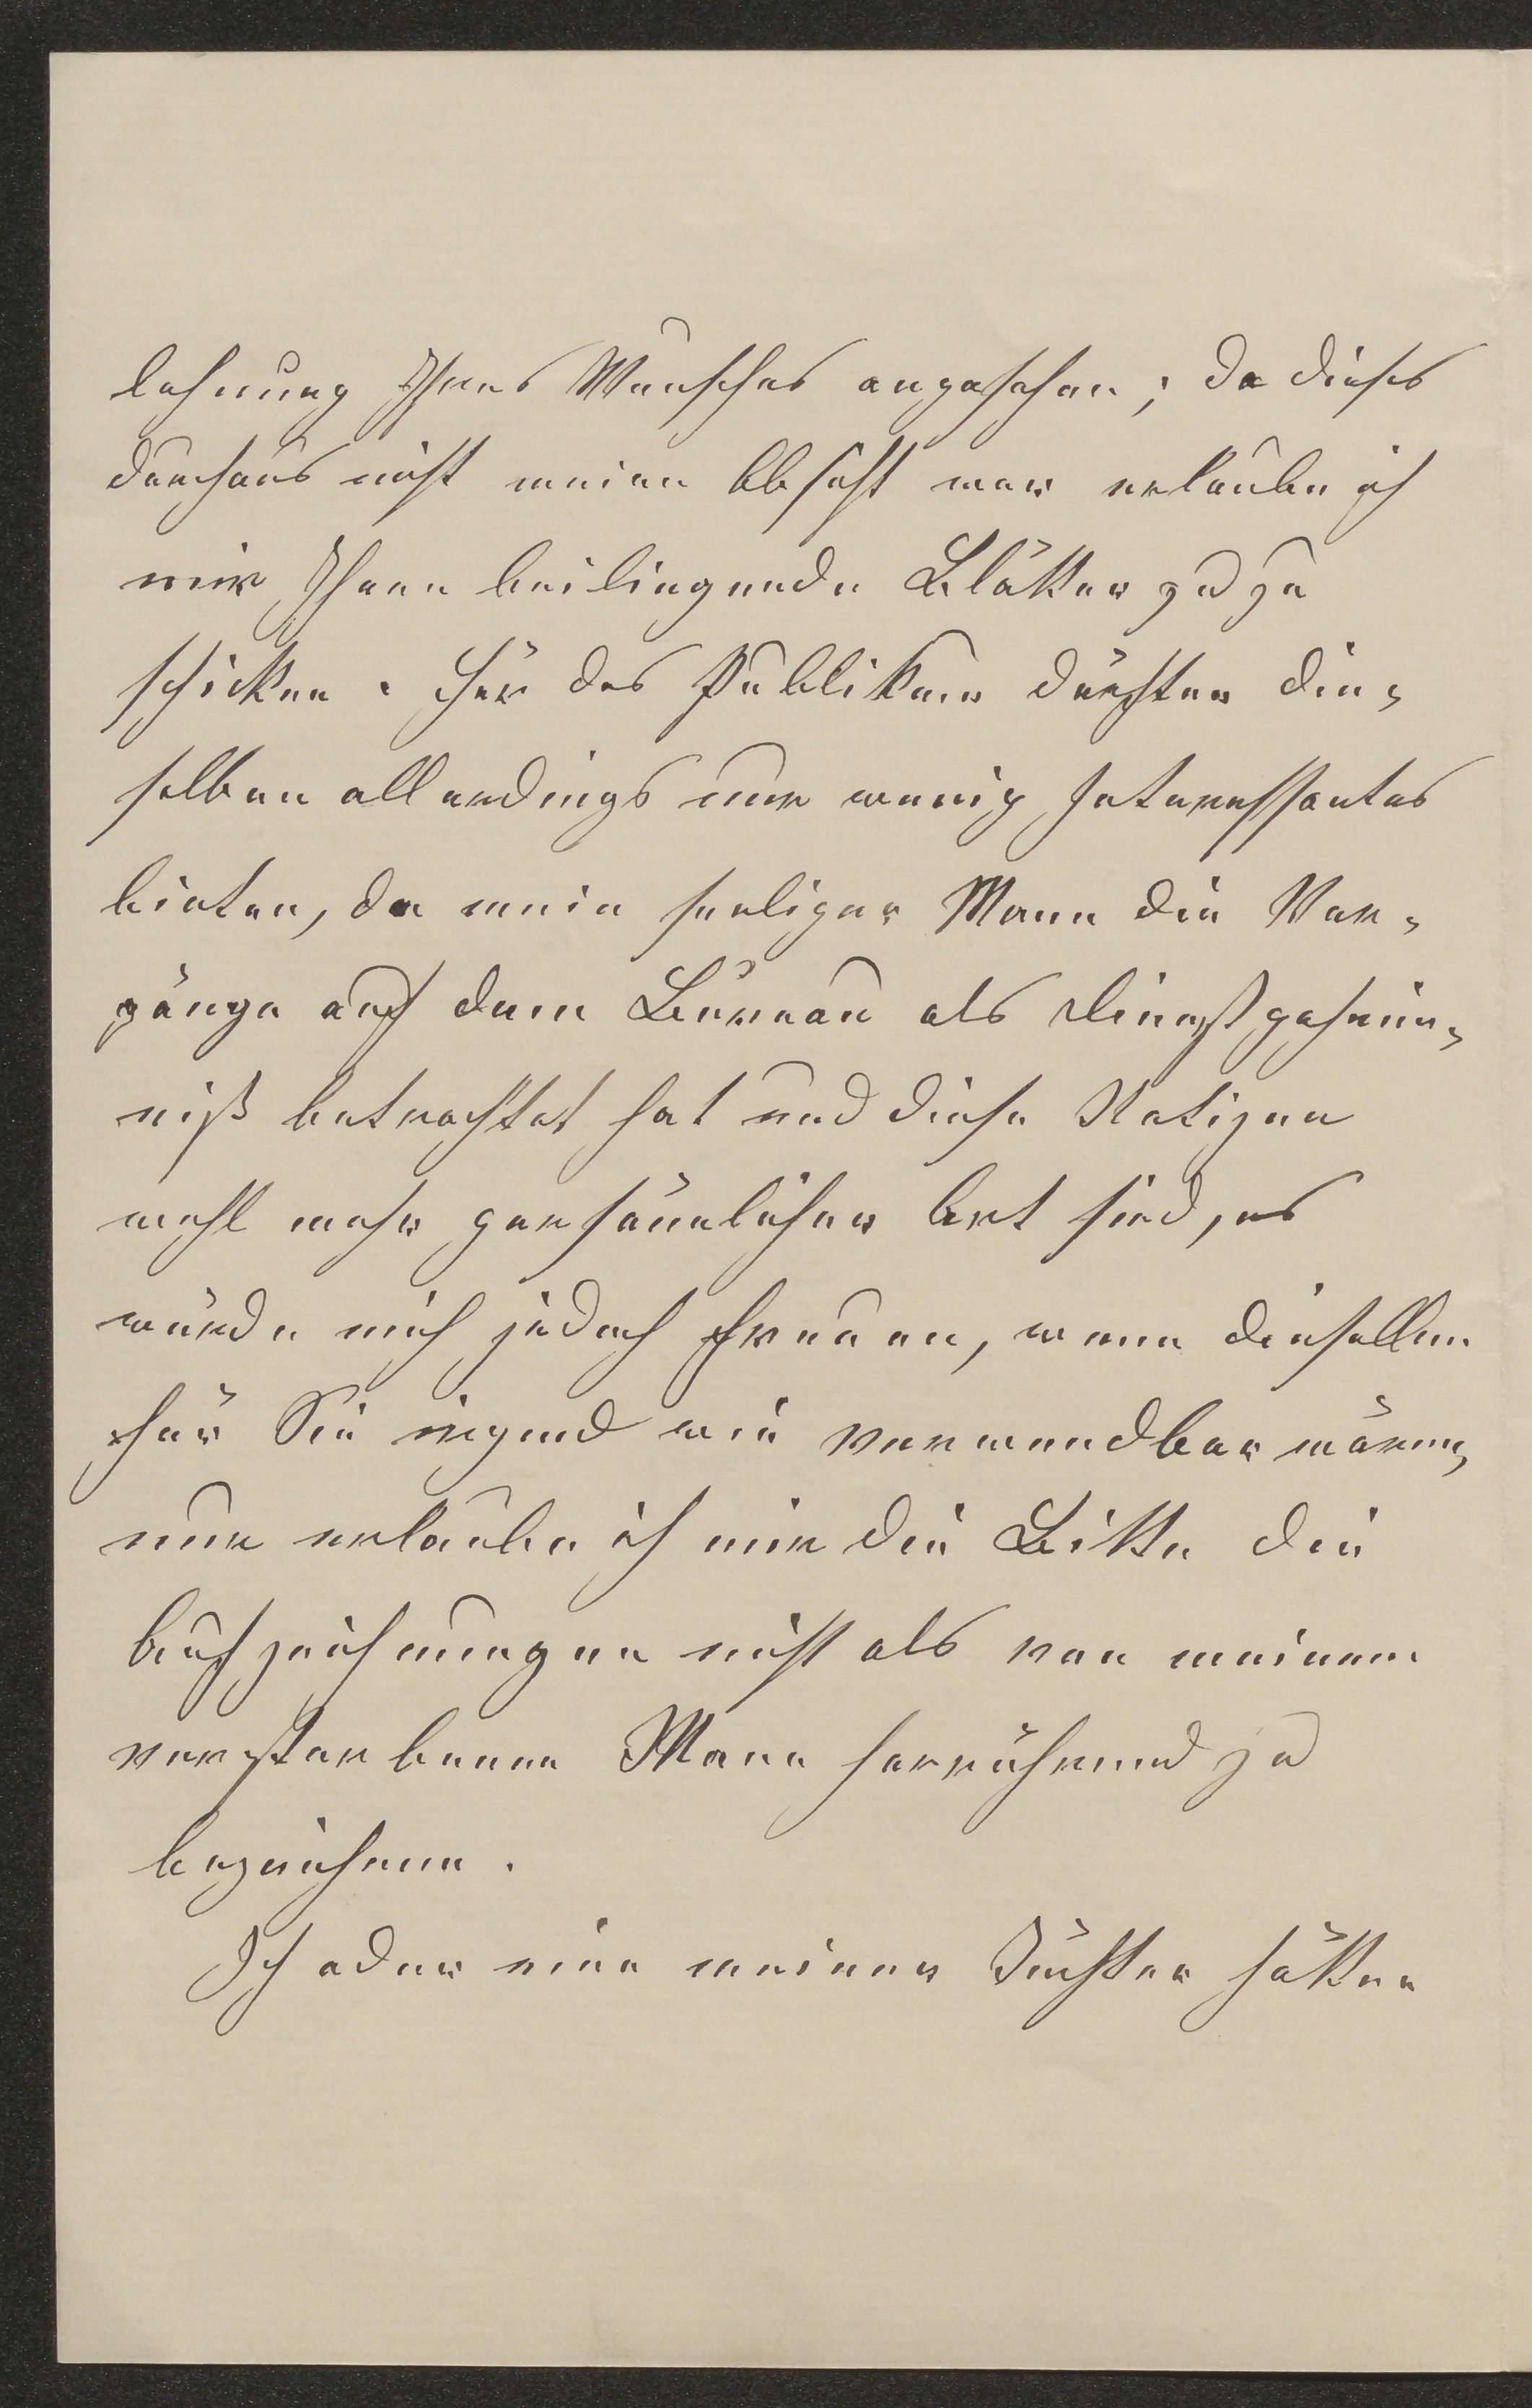 lehnung Ihres Wunsches angesehen; da dieses
durchaus nicht meine Absicht war erlaube ich
mir Ihnen beiliegende Blätter zu zu
schicken. Für das Publikum dürften die-
selben allerdings nur wenig Interessantes
bieten, da mein seeliger Mann die Vor-
gänge auf dem Büreau als Dienstgeheim-
niß betrachtet hat und diese Notizen
wohl mehr persönlicher Art sind, es
würde mich jedoch freuen, wenn dieselben
für Sie irgend wie verwendbar wären,
nur erlaube ich mir die Bitte die
Aufzeichnungen nicht als von meinem
verstorbenen Mann herrührend zu
bezeichnen.
Ich oder eine meiner Töchter hätten